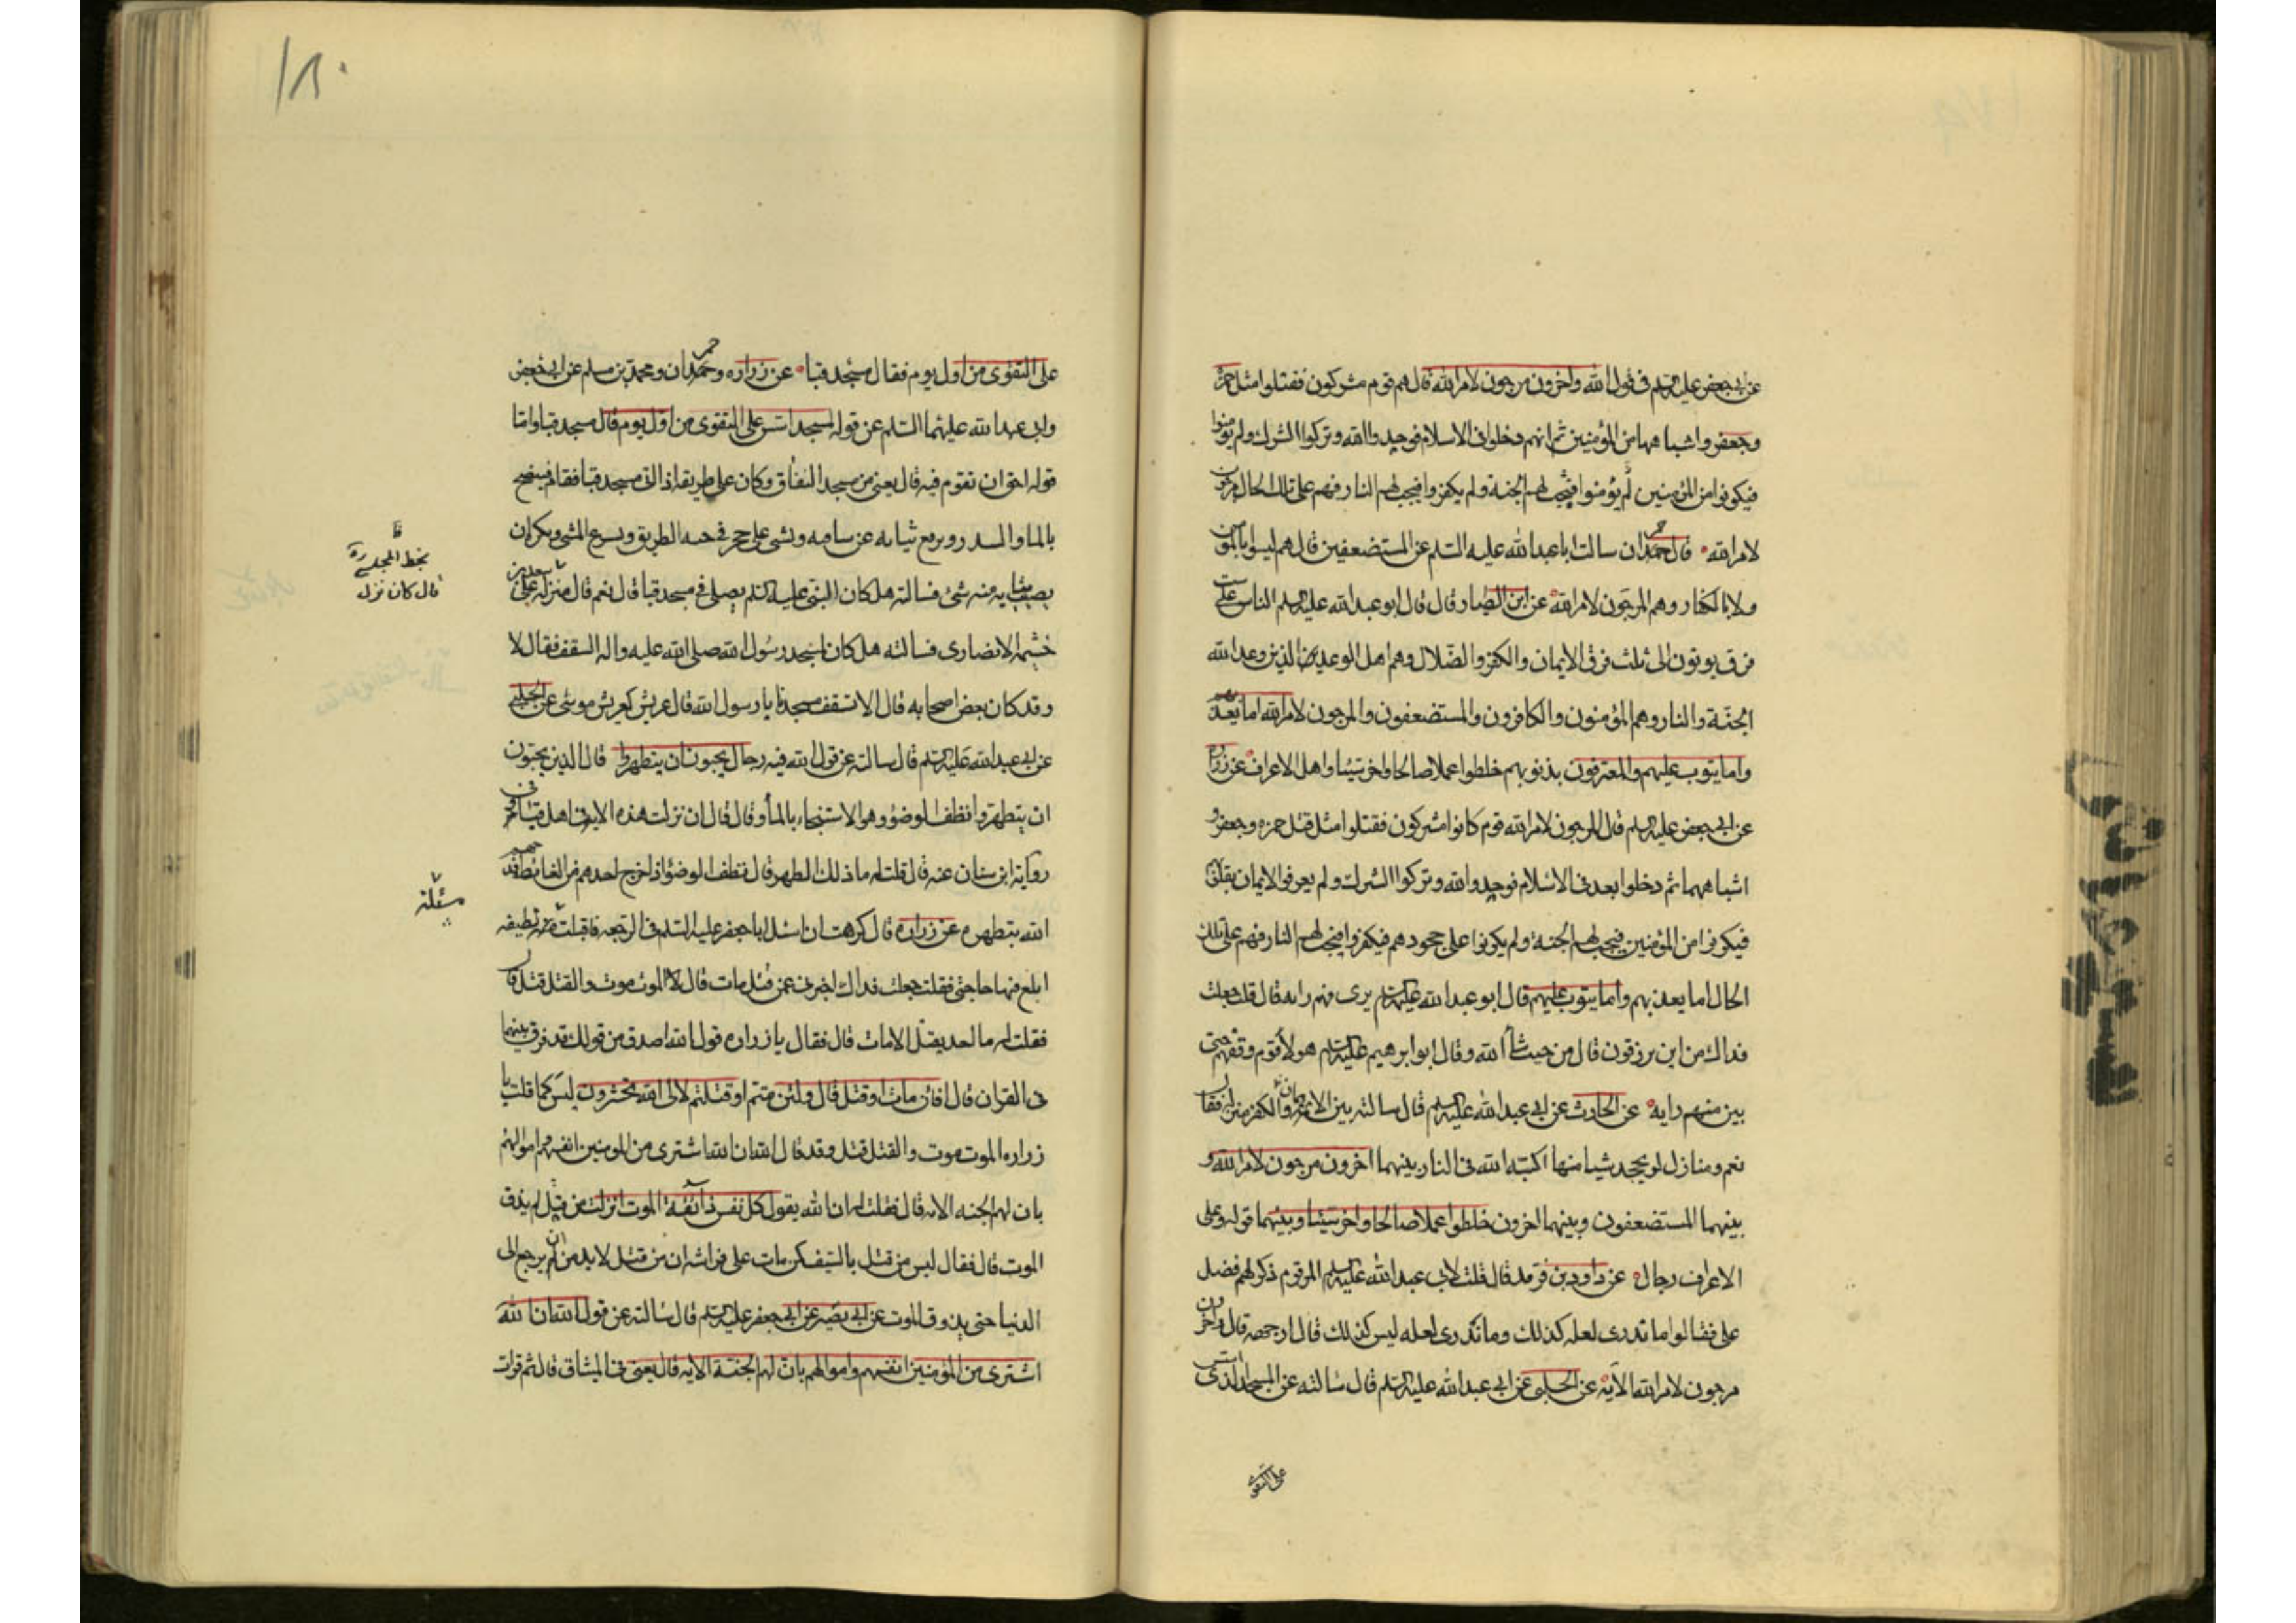 عن ابى جعفر عليه السلم فى قول الله واخرون مرجون لامر الله قال هم قوم مشركون فقتلوا مثل حمزة
وجعفر واشباههما من المؤمنين ثم انهم دخلوا فى الاسلام فوحدوا الله وتركوا الشرك ولم يؤمنوا
فيكونوا من المؤمنين لم يؤمنوا فتجب لهم الجنة ولم يكفروا فيجب لهم النار فهم على تلك الحال مرجون
لامر الله قال حمران سالت ابا عبد الله عليه السلم عن المستضعفين قال هم ليسوا بالمؤمنين
ولا بالكفار وهم المرجون لامر الله عن ابن الطيار قال قال ابو عبد الله عليه السلم الناس على ست
فرق يوتون الى ثلث فرق الايمان والكفر والضلال وهم اهل الوعيد الذين وعد الله
الجنة والنار وهم المؤمنون والكافرون والمستضعفون والمرجون لامر الله اما يعذبهم
واما يتوب عليهم والمعترفون بذنوبهم خلطوا عملا صالحا واخر سيئا واهل الاعراف عن زرارة
عن ابى جعفر عليه السلم قال المرجون لامر الله قوم كانوا مشركون فقتلوا مثل قتل حمزه وجعفر و
اشباههما ثم دخلوا بعد فى الاسلام فوحدوا الله وتركوا الشرك ولم يعرفوا الايمان بقلوبهم
فيكونوا من المؤمنين فيجب لهم الجنة ولم يكونوا على جحودهم فيكفروا فيجب لهم النار فهم على تلك
الحال اما يعذبهم واما يتوب عليهم قال ابو عبد الله عليه السلم يرى فيهم رايه قال قلت جعلت
فداك من اين يرزقون قال من حيث شاء الله وقال ابو ابرهيم عليه السلم هولاء قوم وقفهم حتى
يبين منهم رايه عن الحارث عن ابى عبد الله عليه السلم قال سالته بين الايمان والكفر منزلة فقال
نعم ومنازل لو يجحد شيا منها اكبه الله فى النار بينهما اخرون مرجون لامر الله و
بينهما المستضعفون وبينهما اخرون خلطوا عملا صالحا واخر سيئا وبينهما قوله وعلى
الاعراف رجال عن داود بن فرقد قال قلت لابى عبد الله عليه السلم المرقوم ذكر لهم فضل
على فقالوا ما تدرى لعله كذلك وما تدرى لعله ليس كذلك قال ارجه قال واخرون
مرجون لامر الله الآية عن الحلبى عن ابى عبد الله عليه السلم قال سالته عن المسجد الذى اسس
على التقوى
على التقوى من اول يوم فقال مسجد قبا عن زراره وحمران ومحمد بن مسلم عن ابى جعفر
وابى عبد الله عليهما السلم عن قوله لمسجد اسس على التقوى من اول يوم قال مسجد قبا واما
قوله احق ان تقوم فيه قال يعنى من مسجد النفاق وكان على طريقه اذا اتى مسجد قبا فقام فينضح
بالماء والسدر ويرفع ثيابه عن ساقيه ويمشى على حجر فى ناحية الطريق ويسرع المشى ويكره ان
يصيب ثيابه منه شئ فسالته هل كان النبى عليه السلم يصلى فى مسجد قبا قال نعم قال منزله على سعد بن
خثيمه الانصارى فسالته هل كان لمسجد رسول الله صلى الله عليه واله السقف فقال لا
وقد كان بعض اصحابه قال الا تسقف مسجدنا يا رسول الله قال عريش كعريش موسى عن الحلبى
عن ابى عبد الله عليه السلم قال سالته عن قول الله فيه رجال يحبون ان يتطهروا قال الذين يحبون
ان يتطهروا نظف الوضوء وهو الاستنجاء بالماء وقال قال ان نزلت هذه الاية فى اهل قبا وفى
رواية ابن سنان عنه قال قلت له ما ذلك الطهر قال نظف الوضوء اذا خرج احدهم من الغائط فمدحهم
الله بتطهره عن زراره قال كرهت ان اسئل ابا جعفر عليه السلم فى الرجعه فاقبلت مسئلة لطيفه
ابلغ فيها حاجتى فقلت جعلت فداك اخبرنى عمن قتل مات قال لا الموت موت والقتل قتل قال
فقلت له ما احد يقتل الا مات قال فقال يا زراره قول الله اصدق من قولك قد فرق بينهما
فى القران قال افائن مات او قتل قال ولئن متم او قتلتم لالى الله تحشرون ليس كما قلت يا
زراره الموت موت والقتل قتل وقد قال الله ان الله اشترى من المومنين انفسهم واموالهم
بان لهم الجنه الايه قال فقلت له ان الله يقول كل نفس ذائقة الموت افرايت من قتل لم يذق
الموت قال فقال ليس من قتل بالسيف كمن مات على فراشه ان من قتل لا بد من ان يرجع الى
الدنيا حتى يذوق الموت عن ابى بصير عن ابى جعفر عليه السلم قال سالته عن قول الله ان الله
اشترى من المؤمنين انفسهم واموالهم بان لهم الجنة الآيه قال يعنى فى الميثاق قال ثم قرات
بخط المجلسى ره
قال كان نزل
مسئلة
١٨٠